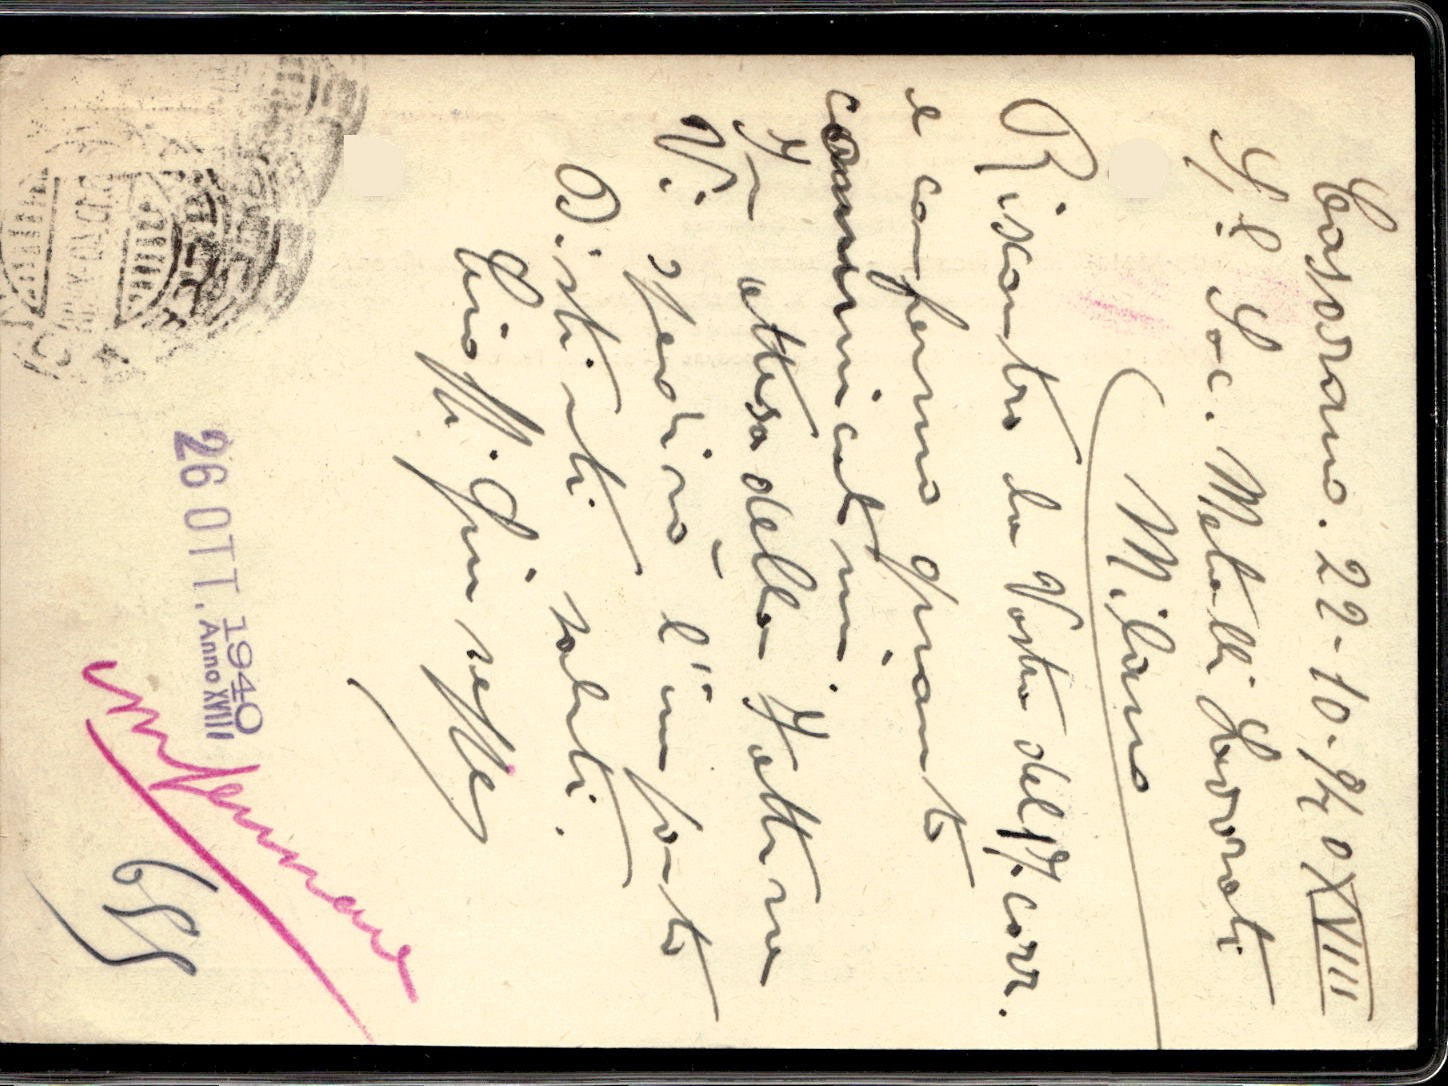 Casorano. 22-10-940 XVIII
Soc. Metalli Lavorati
Milano
Riscontro la Vostra del 17. corr.
e confermo quanto
comunicatomi.
In attesa della Fattura
Vi spedirò l'importo
Distinti saluti.
Giuseppe
26 OTT. 1940
Anno XVIII
655